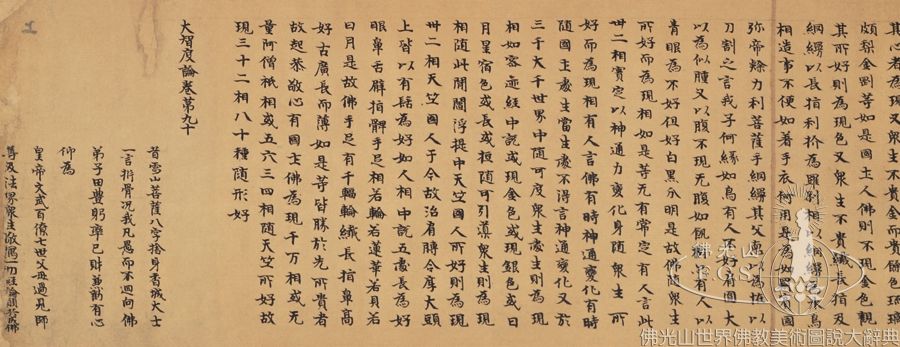 其心者為現又衆生不貴金而貴餘色琉璃
頗梨金剛等如是國土人佛則不現金色觀
其所好則為現色又衆生不貴纖長指及
網縵以長指利抓為羅刹相網縵為水鳥
相造事不便如著手衣何用是為如罽賓國
弥帝力利菩薩手網縵其父惡以為怪以
刀割之言我子何緣如鳥有人不好肩圓大
以為似腫又以腹不現无腹如餓相有人以
青眼為不好但好白黑分明是故佛随衆生
所好而為現相如是等无有常定有人言此
卅二相實定以神通力變化身随衆生所
好而為現相有人言佛有時神通變化有時
随國土處生當生處不得言神通變化又於
三千大千世界中随可度衆生處生則為現
相如密迹經中說或現金色或現銀色或日
月星宿色或長或短随可引導衆生則為現
相随此閻浮提中天竺國人所好則為現
卅二相天竺國人于今故治肩髆令厚大頭
上皆以有髻為好如人相中說五處長為好
眼鼻舌臂指髀手足相若輪若蓮華若貝若
日月是故佛手足有千輻輪纖長指鼻高
好舌廣長而薄如是等皆勝於先所貴者
故起恭敬心有國土佛為現千万相或无
量阿僧祇相或五六三四相随天竺所好故
現三十二相八十種随形好
大智度論卷第九十
昔雪山菩薩八字捨身香城大士
一言析骨况我凡愚而不迴向佛
弟子田豐躬率己財兼勸有心
仰為
皇帝文武百僚七世父母過見師
尊及法界衆生敬寫一切經論願於成佛
佛光山
FGS
佛光山世界佛教美術圖說大辭典